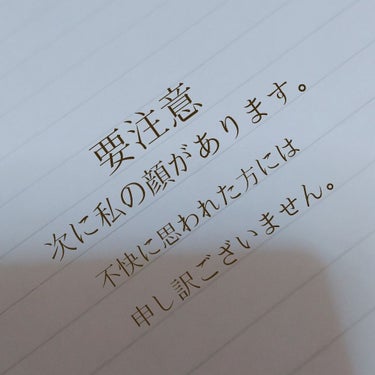 要注意
次に私の顔があります。
不快に思われた方には
申し訳ございません。